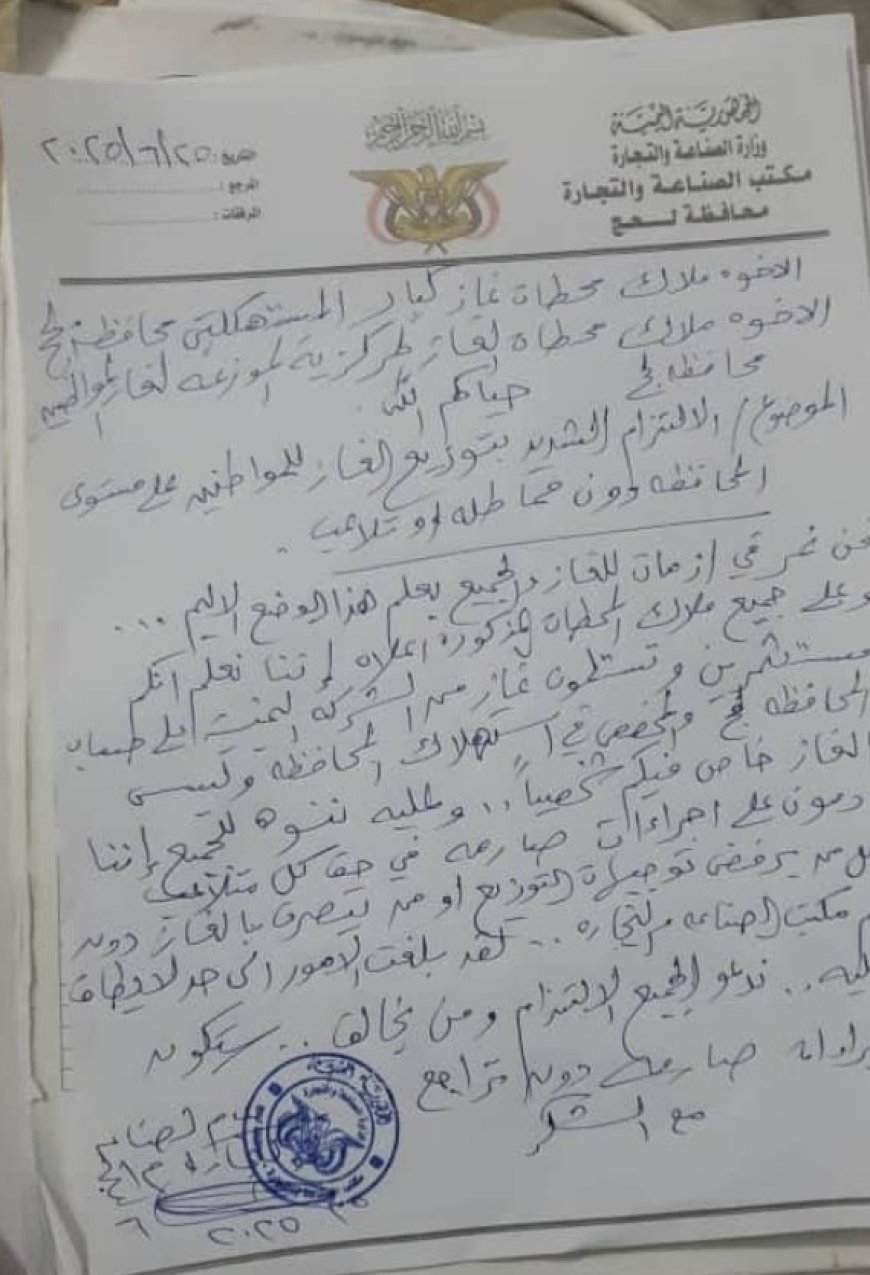 بسم الله الرحمن الرحيم
الجمهورية اليمنية
وزارة الصناعة والتجارة
مكتب الصناعة والتجارة
محافظة لحج
التاريخ : ٢٠٢٥/٦/٢٥
المرجع :
المرفقات :
الاخوه ملاك محطات غاز كبار المستهلكين محافظة لحج
الاخوه ملاك محطات الغاز المركزية الموزعه لغاز المواطنين
محافظه لحج حياكم الله
الموضوع / الالتزام الشديد بتوزيع الغاز للمواطنين على مستوى
المحافظه دون مماطله او تلاعب .
نحن نمر في ازمات للغاز والجميع يعلم هذا الوضع الاليم ...
وعلى جميع ملاك المحطات المذكورة اعلاه إننا نعلم انكم
مستثمرين وتستلمون غاز من الشركه اليمنية على حساب
المحافظه لحج والمخصص في استهلاك المحافظه وليس
الغاز خاص فيكم شخصياً .. وعليه ننوه للجميع إننا
دمون على اجراءات صارمه في حق كل متلاعب
كل من يرفض توجيهات التوزيع او من يتصرف بالغاز دون
مكتب الصناعه والتجاره .. لقد بلغت الامور الى حد لا يطاق
عليه .. ندعو الجميع الالتزام ومن يخالف .. ستكون
صارمه دون تراجع
مع الشكر
٢٠٢٥